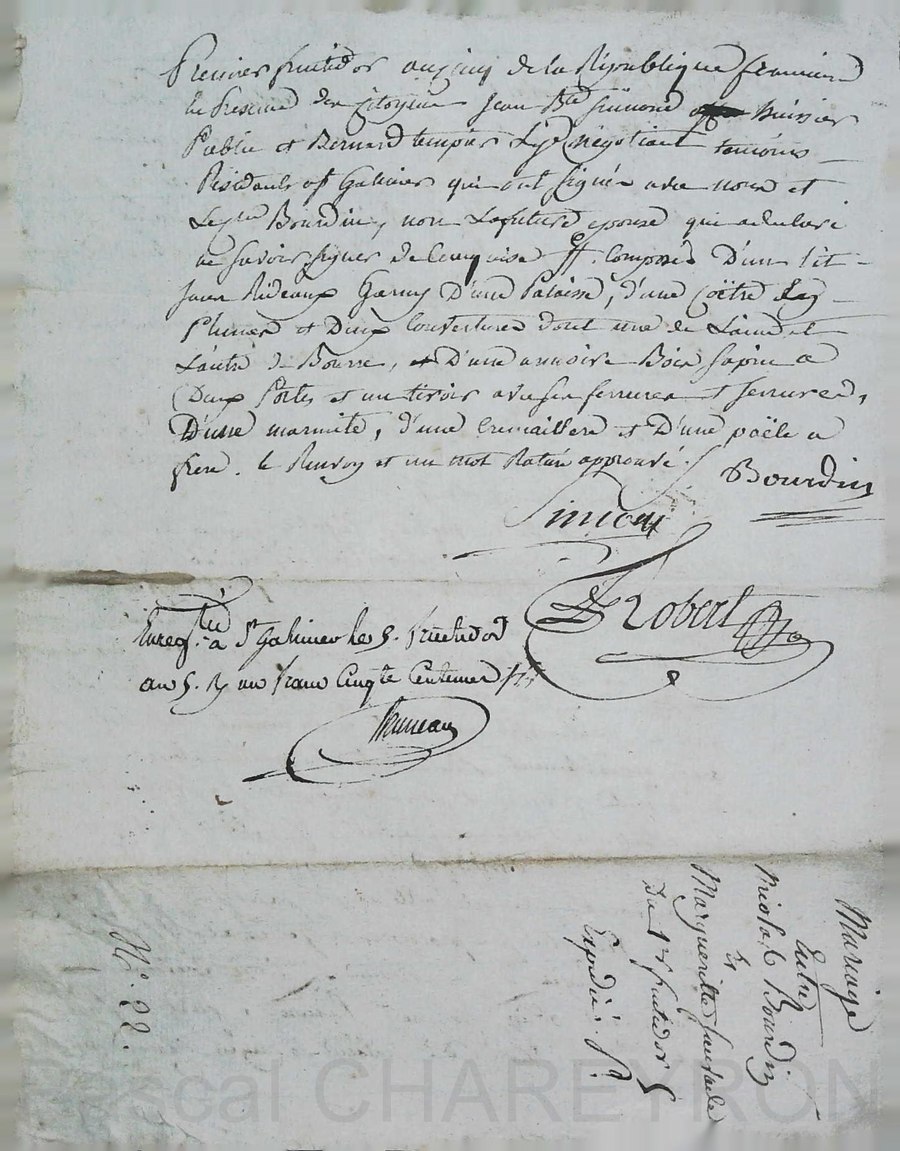 Premier fructidor an cinq de la République francaise
En Presence des Citoyens Jean Bte Simond huissier
Public et Bernard Lyé Négotiant temoins
Résidants a St Galmier qui ont signés avec nous et
Led. Bourdin, non La future epouse qui a declaré
ne savoir signer de ce enquise ff. Composés D'un lit
sans Rideaux Garny D'une Paliasse, d'une Coëtre
Plumes et Deux Couvertures dont une de Laine et
Lautre de Bourre, D'une armoire Bois sapin a
Deux Portes et un tiroir avec ses ferrures et serrures,
D'une marmite, d'une Cremaillere et D'une poële a
frire. le Renvoy et un mot Raturé approuvé
Bourdin
Simond
Robert
Enreg. tré a St Galmier le 5. Fructidor
an 5. R un franc Cinqte Centimes
Mariage
Entre
Nicolas Bourdin
Et
Marguerite
Du 1er fructidor 5
Expédié.
N°. 22.
Pascal CHAREYRON